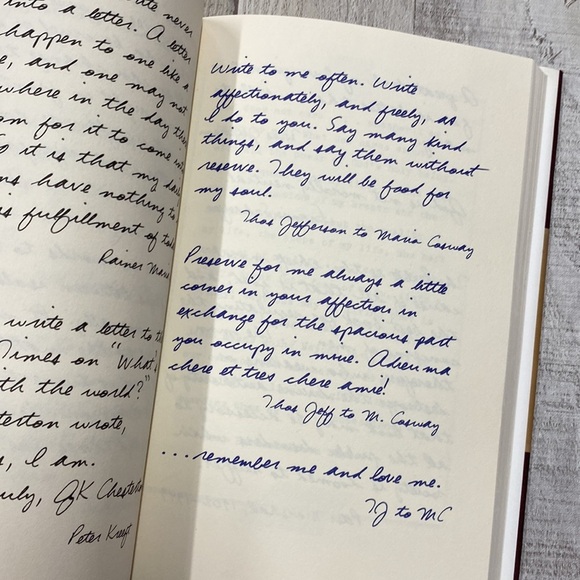 ate never
into a letter. A letter
happen to one like a
e, and one may not
where in the day th
om for it to come
it is that my
ns have nothing to
s fulfillment of
Rainer Mar
write a letter to t
Times on "What
th the world?"
terton wrote,
s, I am.
uly, GK Chester
Peter Kreeft
Write to me often. Write
affectionately, and freely, as
I do to you. Say many kind
things, and say them without
reserve. They will be food for
my soul.
Thos Jefferson to Maria Cosway
Preserve for me always a little
corner in your affection in
exchange for the spacious part
you occupy in mine. Adieu ma
chere et tres chere amie!
Thos Jeff to M. Cosway
...remember me and love me.
TJ to MC